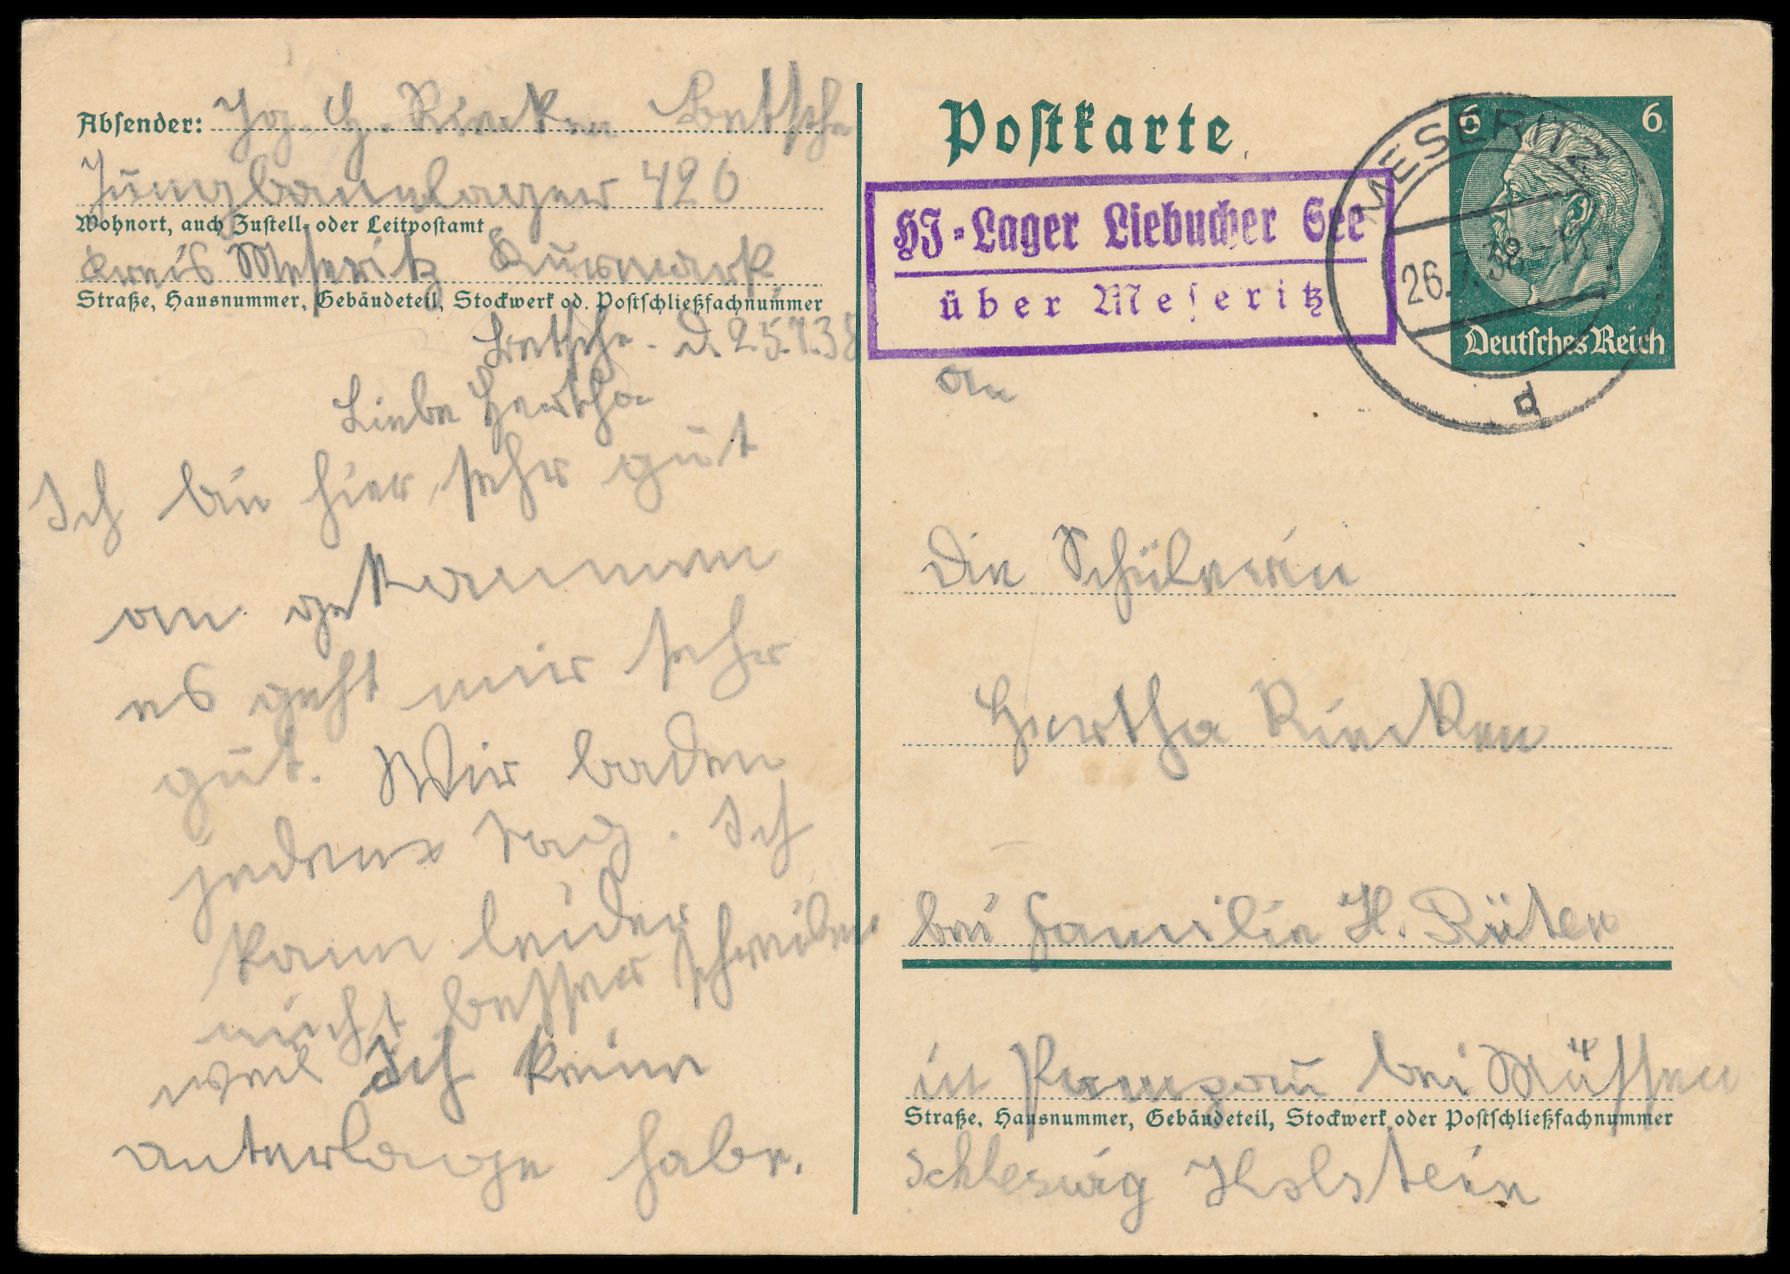 Absender: Jg. H. Riecken Betsche
Jungbannlager 420
Wohnort, auch Zustell- oder Leitpostamt
Kreis Meseritz Kurmark
Straße, Hausnummer, Gebäudeteil, Stockwerk od. Postschließfachnummer
Betsche. d. 25.7.38
Liebe Hertha
Ich bin hier sehr gut
an gekommen
es geht mir sehr
gut. Wir baden
jeden Tag. Ich
kann leider
nicht besser schreiben
weil Ich keine
unterlage habe.
Postkarte
6 6
Deutsches Reich
MESERITZ
26.7.38
d
HJ-Lager Liebucher See
über Meseritz
An
die Schülerin
Hertha Riecken
bei Familie H. Rüter
in Pampau bei Müssen
Straße, Hausnummer, Gebäudeteil, Stockwerk oder Postschließfachnummer
Schleswig Holstein